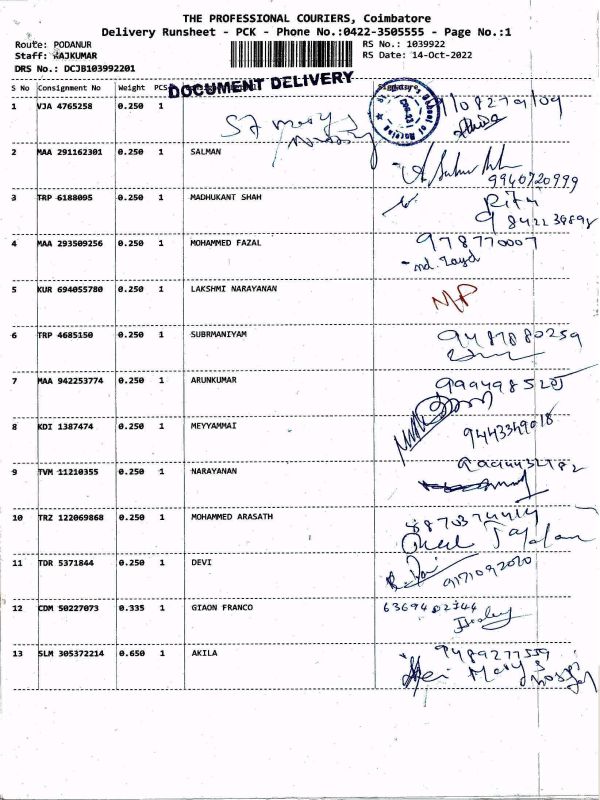 THE PROFESSIONAL COURIERS, Coimbatore
Delivery Runsheet - PCK - Phone No.:0422-3505555 - Page No.:1
Route: PODANUR RS No.: 1039922
Staff: RAJKUMAR RS Date: 14-Oct-2022
DRS No.: DCJB103992201
DOCUMENT DELIVERY
S No Consignment No Weight PCS
1 VJA 4765258 0.250 1 St mary's
2 MAA 291162301 0.250 1 SALMAN
9940720999
3 TRP 6188095 0.250 1 MADHUKANT SHAH
4 MAA 293509256 0.250 1 MOHAMMED FAZAL 978770007
md. Zayd
5 KUR 694055780 0.250 1 LAKSHMI NARAYANAN MP
6 TRP 4685150 0.250 1 SUBRMANIYAM 9487880259
7 MAA 942253774 0.250 1 ARUNKUMAR
8 KDI 1387474 0.250 1 MEYYAMMAI 9443349018
9 TVM 11210355 0.250 1 NARAYANAN
10 TRZ 122069868 0.250 1 MOHAMMED ARASATH
11 TDR 5371844 0.250 1 DEVI 9171092020
12 CDM 50227073 0.335 1 GIAON FRANCO 6369402344
13 SLM 305372214 0.650 1 AKILA 9489277559
Mary's